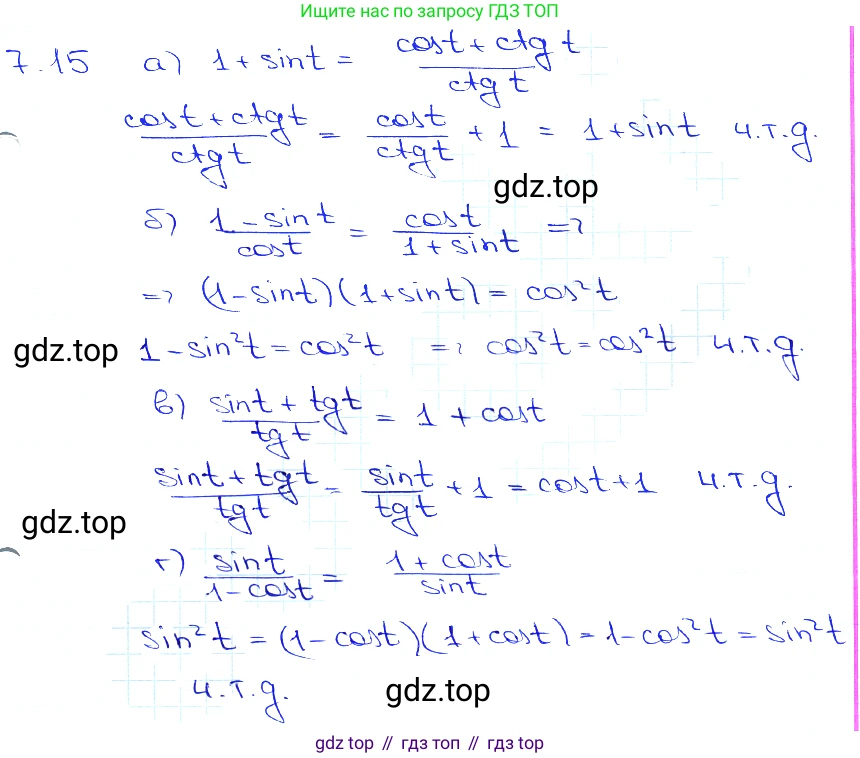 Ищите нас по запросу ГДЗ ТОП
7.15 а) 1 + sint = (cost + ctg t)/(ctg t)
(cost + ctgt)/(ctgt) = cost/ctgt + 1 = 1 + sint ч.т.д.
gdz.top
б) (1 - sint)/cost = cost/(1 + sint) =>
=> (1 - sint)(1 + sint) = cos²t
gdz.top 1 - sin²t = cos²t => cos²t = cos²t ч.т.д.
в) (sint + tgt)/(tgt) = 1 + cost
(sint + tgt)/(tgt) = sint/tgt + 1 = cost + 1 ч.т.д.
gdz.top
г) sint/(1 - cost) = (1 + cost)/sint
sin²t = (1 - cost)(1 + cost) = 1 - cos²t = sin²t
ч.т.д. gdz.top
gdz top // гдз топ // gdz top